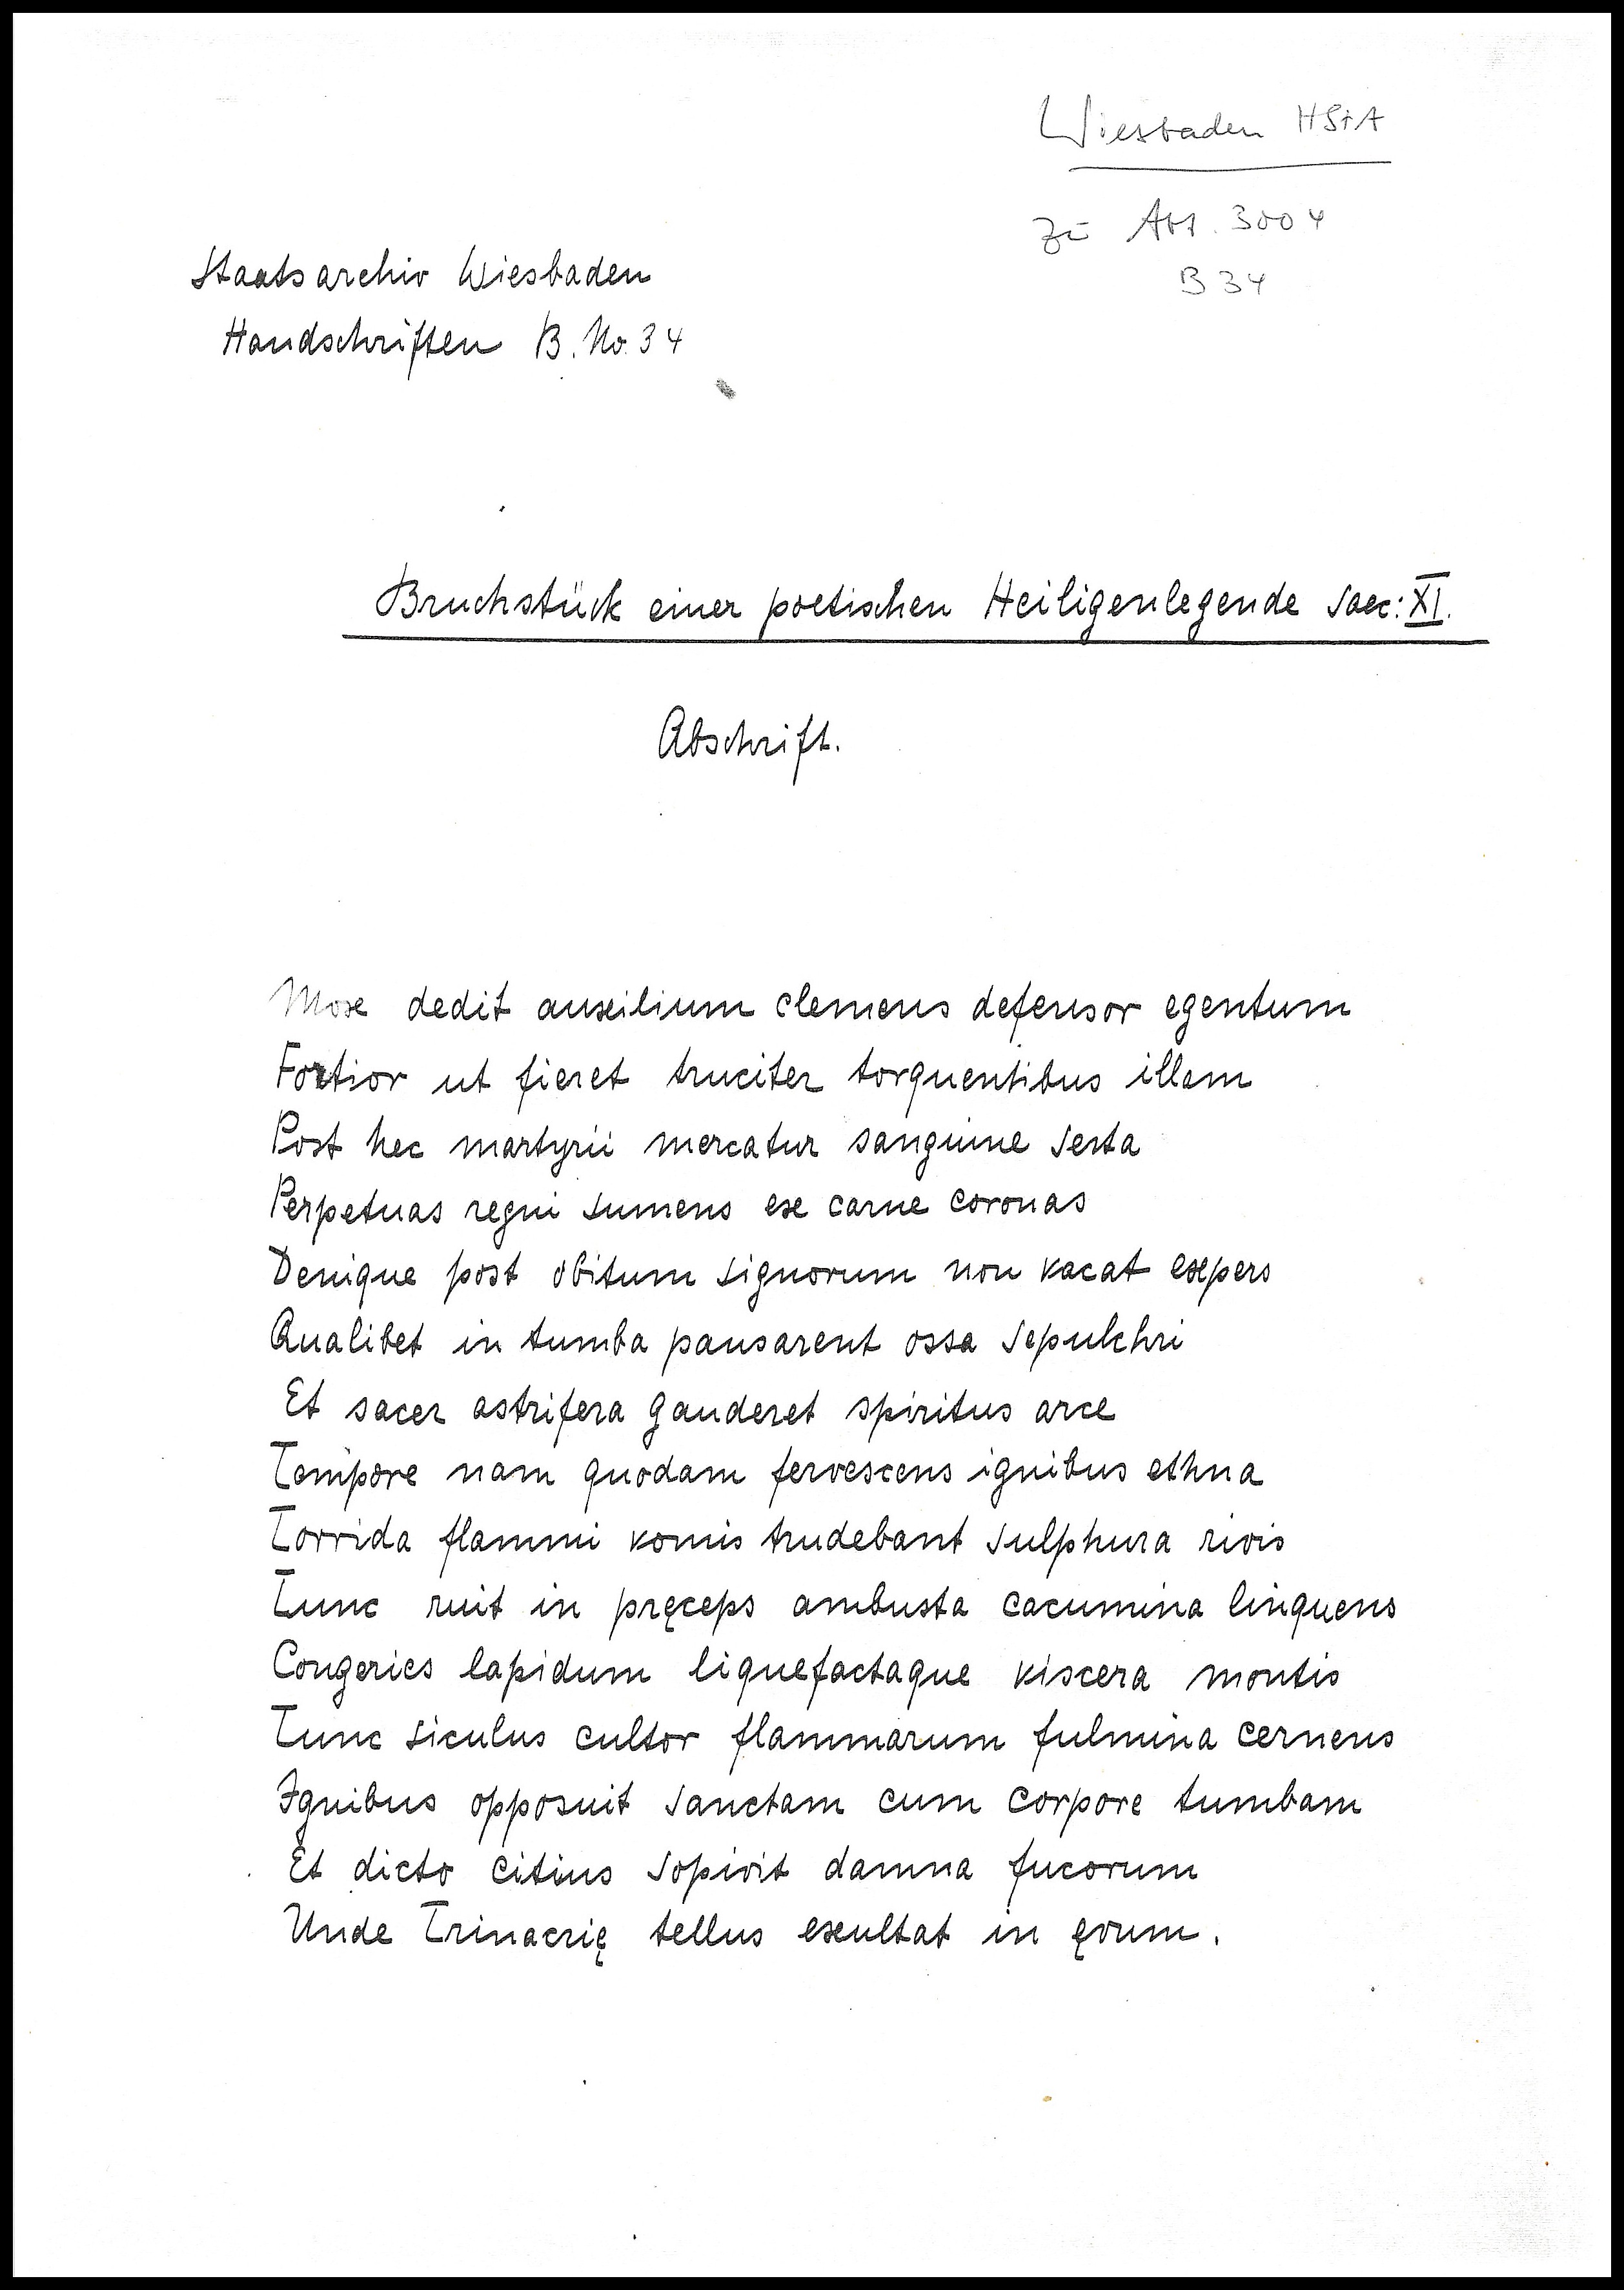 Wiesbaden HStA
Zu Abt. 3004
B 34
Staatsarchiv Wiesbaden
Handschriften B. No. 34
Bruchstück einer poetischen Heiligenlegende saec: XI.
Abschrift.
Mox dedit auxilium clemens defensor egentum
Fortior ut fieret truciter torquentibus illam
Post hec martyrii mercatur sanguine serta
Perpetuas regni sumens ex carne coronas
Denique post obitum signorum non vacat expers
Qualibet in tumba pausarent ossa sepulchri
Et sacer astrifera gauderet spiritus arce
Tempore nam quodam fervescens ignibus ethna
Torrida flammi vomis trudebant sulphura rivis
Tunc ruit in pręceps ambusta cacumina linquens
Congeries lapidum liquefactaque viscera montis
Tunc siculus cultor flammarum fulmina cernens
Ignibus opposuit sanctam cum corpore tumbam
Et dicto citius sopivit damna fucorum
Unde Trinacrię tellus exultat in ęvum.